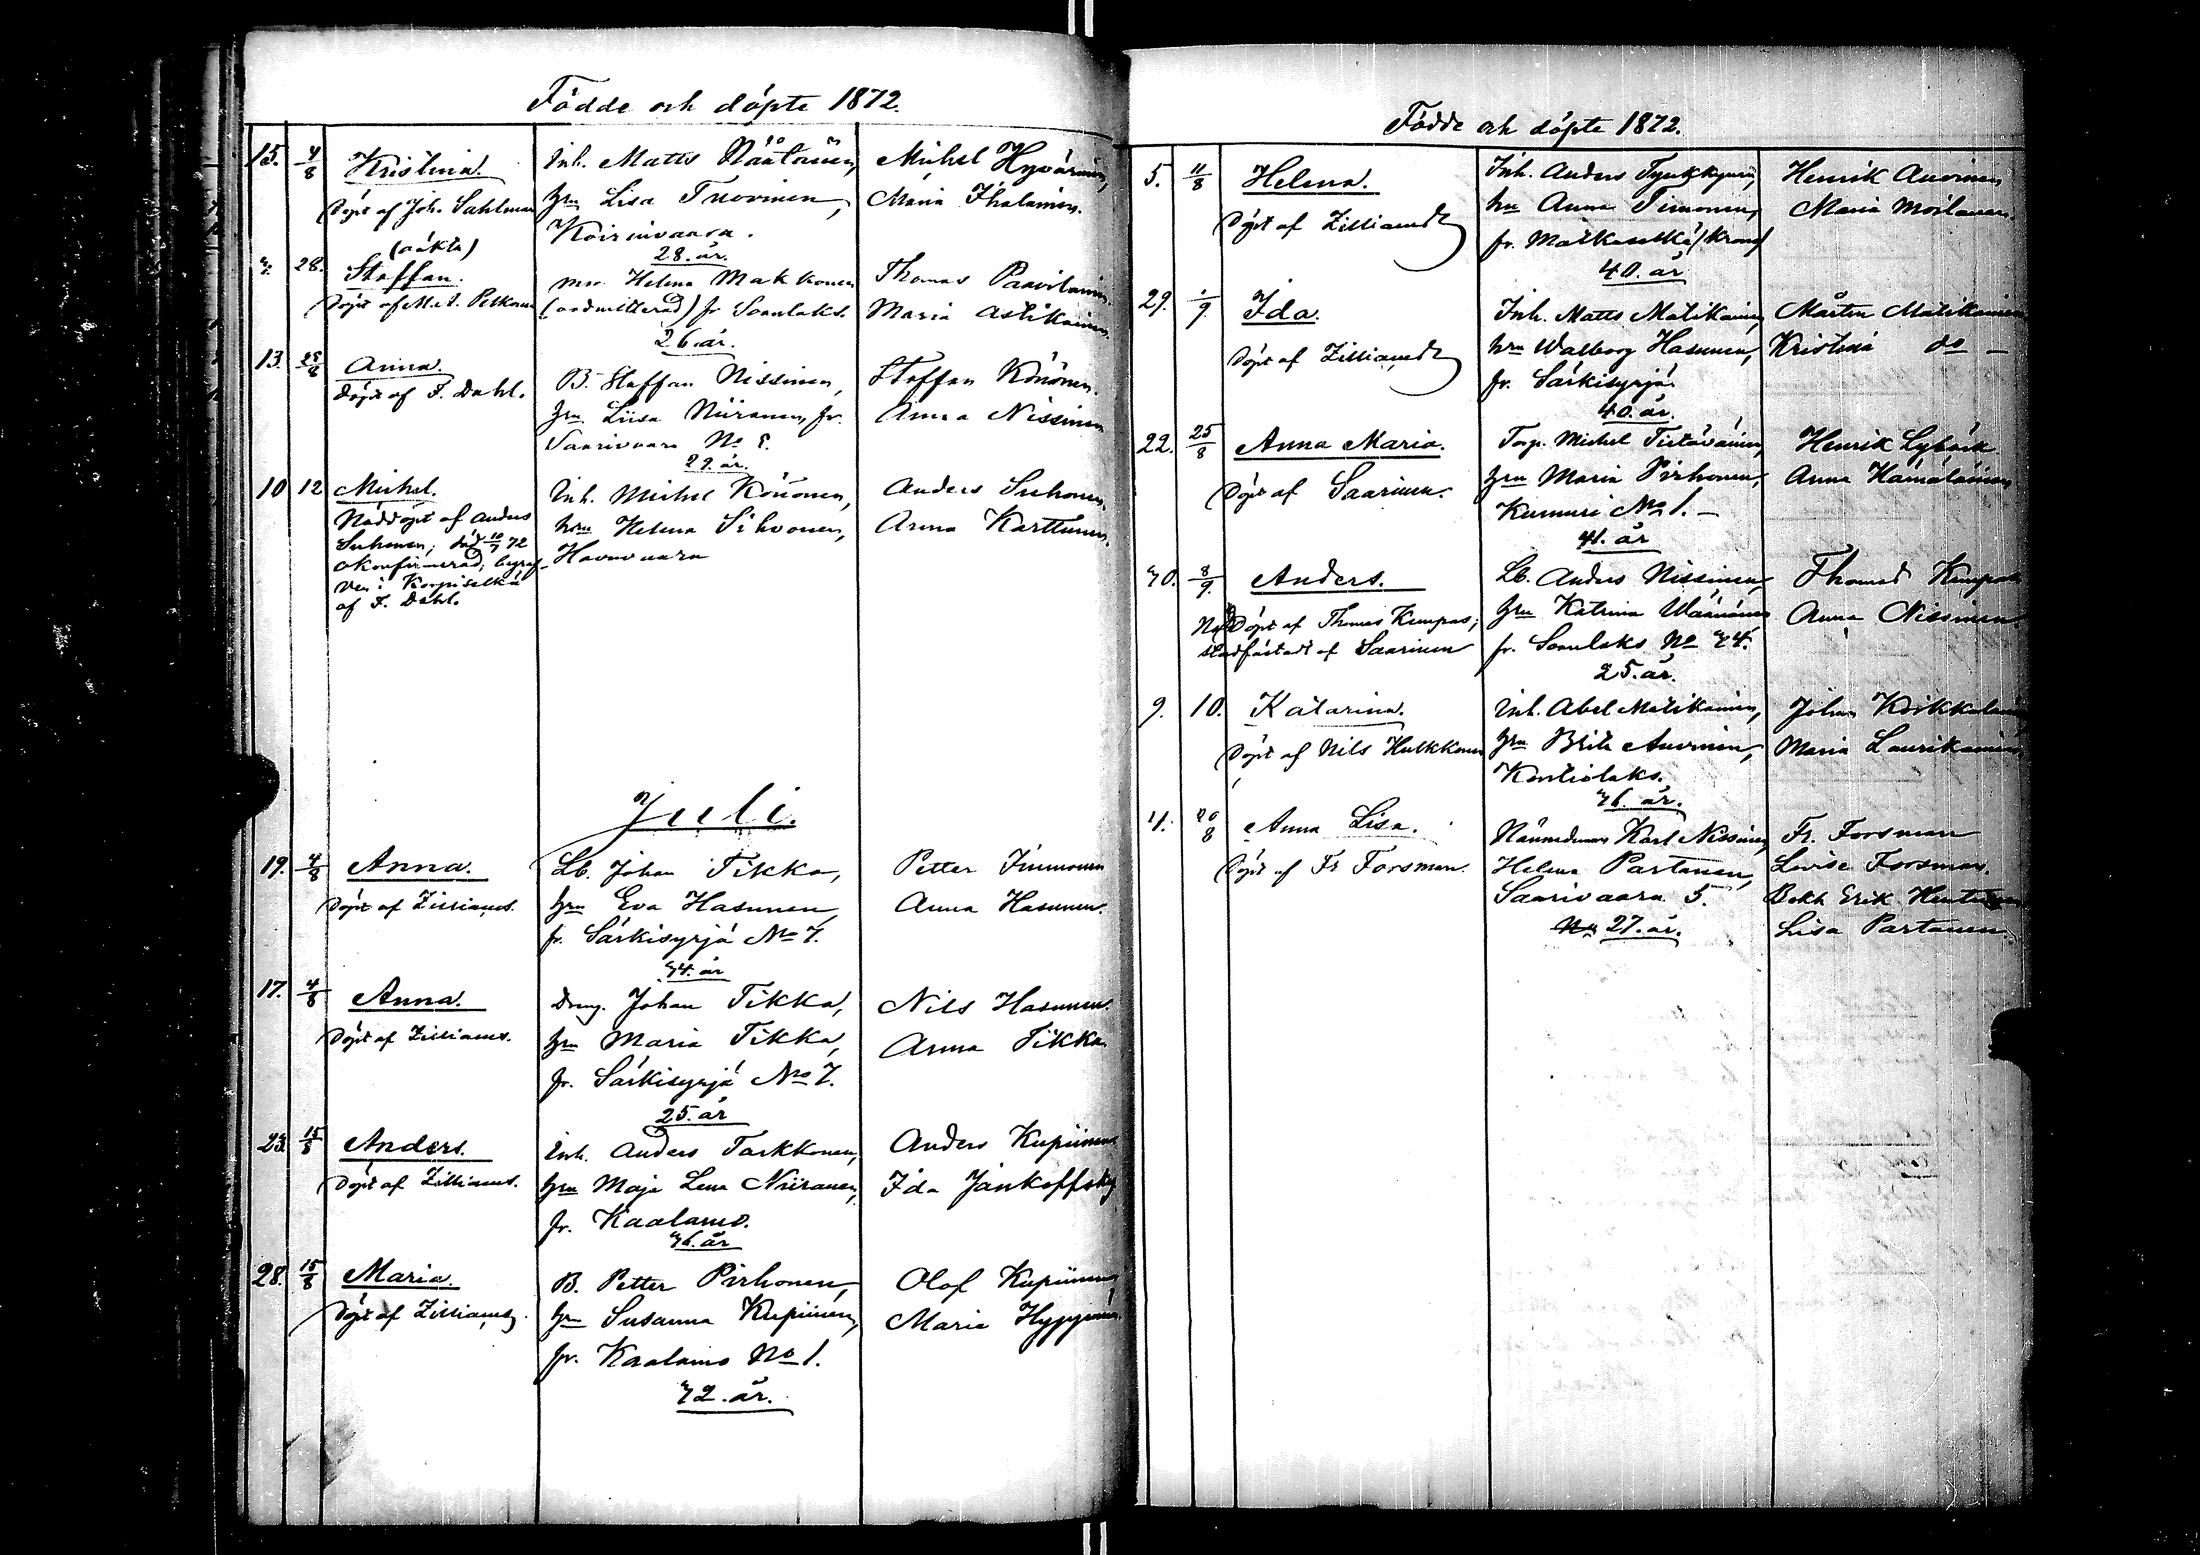 Födde och döpte 1872.
15. 4/8 Kristina. Inh. Matts Näätänen, Michel Hyvärinen,
Döpt af Joh. Sahlman hru Lisa Tuovinen, Maria Ihalainen.
Koirinvaara.
(oäkta) 28. år.
3. 28. Staffan. Helena Makkonen Thomas Paavilainen
Döpt af Pelkonen (admitterad) fr Soanlaks. Maria Astikainen
26. år.
13. 25/8 Anna. B. Staffan Nissinen, Staffan Könönen.
döpt af F. Dahl. hru Liisa Niiranen, fr. Anna Nissinen
Saarivaara No 8.
29. år.
10 12 Michel. Inh. Michel Könönen, Anders Suhonen,
Nöddöpt af Anders hru Helena Sihvonen, Anna Karttunen.
Suhonen; död 10/7 72 Havuvaara
okonfirmerad; begraf-
ven i Korpiselkä
af F. Dahl.
Juli.
19. 4/8 Anna. Lb. Johan Tikka, Petter Immonen
Döpt af Zilliacus. hru Eva Hasunen, Anna Hasunen.
fr. Särkisyrjä No 7.
34. år
17. 4/8 Anna. Dräng. Johan Tikka, Nils Hasunen.
Döpt af Zilliacus. hru Maria Tikka, Anna Tikka
fr. Särkisyrjä No 7.
25. år
23. 15/8 Anders. Inh. Anders Tarkkonen, Anders Kupiinen
Döpt af Zilliacus. hru Maja Lena Niiranen, Ida Jankoffsky
fr. Kaalamo.
36. år
28. 15/8 Maria. B. Petter Pirhonen, Olof Kupiinen
Döpt af Zilliacus hru Susanna Kupiinen, Maria Hyppönen.
fr. Kaalamo No 1.
32. år.
Födde och döpte 1872.
5. 11/8 Helena. Inh. Anders Tynkkynen, Henrik Auvinen
Döpt af Zilliacus hru Anna Timonen, Maria Moilanen.
fr. Matkaselkä
40. år
29. 1/9 Ida. Inh. Matts Matikainen, Mårten Matikainen
Döpt af Zilliacus hru Walborg Hasunen, Kristina do –
fr. Särkisyrjä.
40. år.
22. 25/8 Anna Maria. Torp. Michel Tietäväinen, Henrik Lybäck
Döpt af Saarinen. hru Maria Pirhonen, Anna Hämäläinen
Kumuri No 1. –
41. år
30. 8/9. Anders. Lb. Anders Nissinen, Thomas Kumpas
Nöddöpt af Thomas Kumpas; hru Katrina Väänänen Anna Nissinen
stadfästadt af Saarinen fr. Soanlaks No 34.
25. år.
9. 10. Katarina. Inh. Abel Matikainen, Johan Koikkalainen
Döpt af Nils Hulkkonen hru Brita Auvinen, Maria Laurikainen,
Kontiolaks.
36. år.
4. 20/8 Anna Lisa. Nämndeman Karl Nissinen, Fr. Forsman
Döpt af Fr Forsman. Helena Partanen, Lovise Forsman.
Saarivaara 5. Erik
27. år. Lisa Partanen.